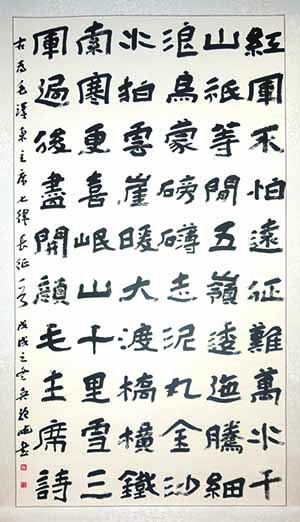 紅軍不怕遠征難萬水千
山祇等閒五嶺逶迤騰細
浪烏蒙磅礴走泥丸金沙
水拍雲崖暖大渡橋橫鐵
索寒更喜岷山千里雪三
軍過後盡開顏毛主席詩
右為毛澤東主席七律長征一首 戊戌之 書